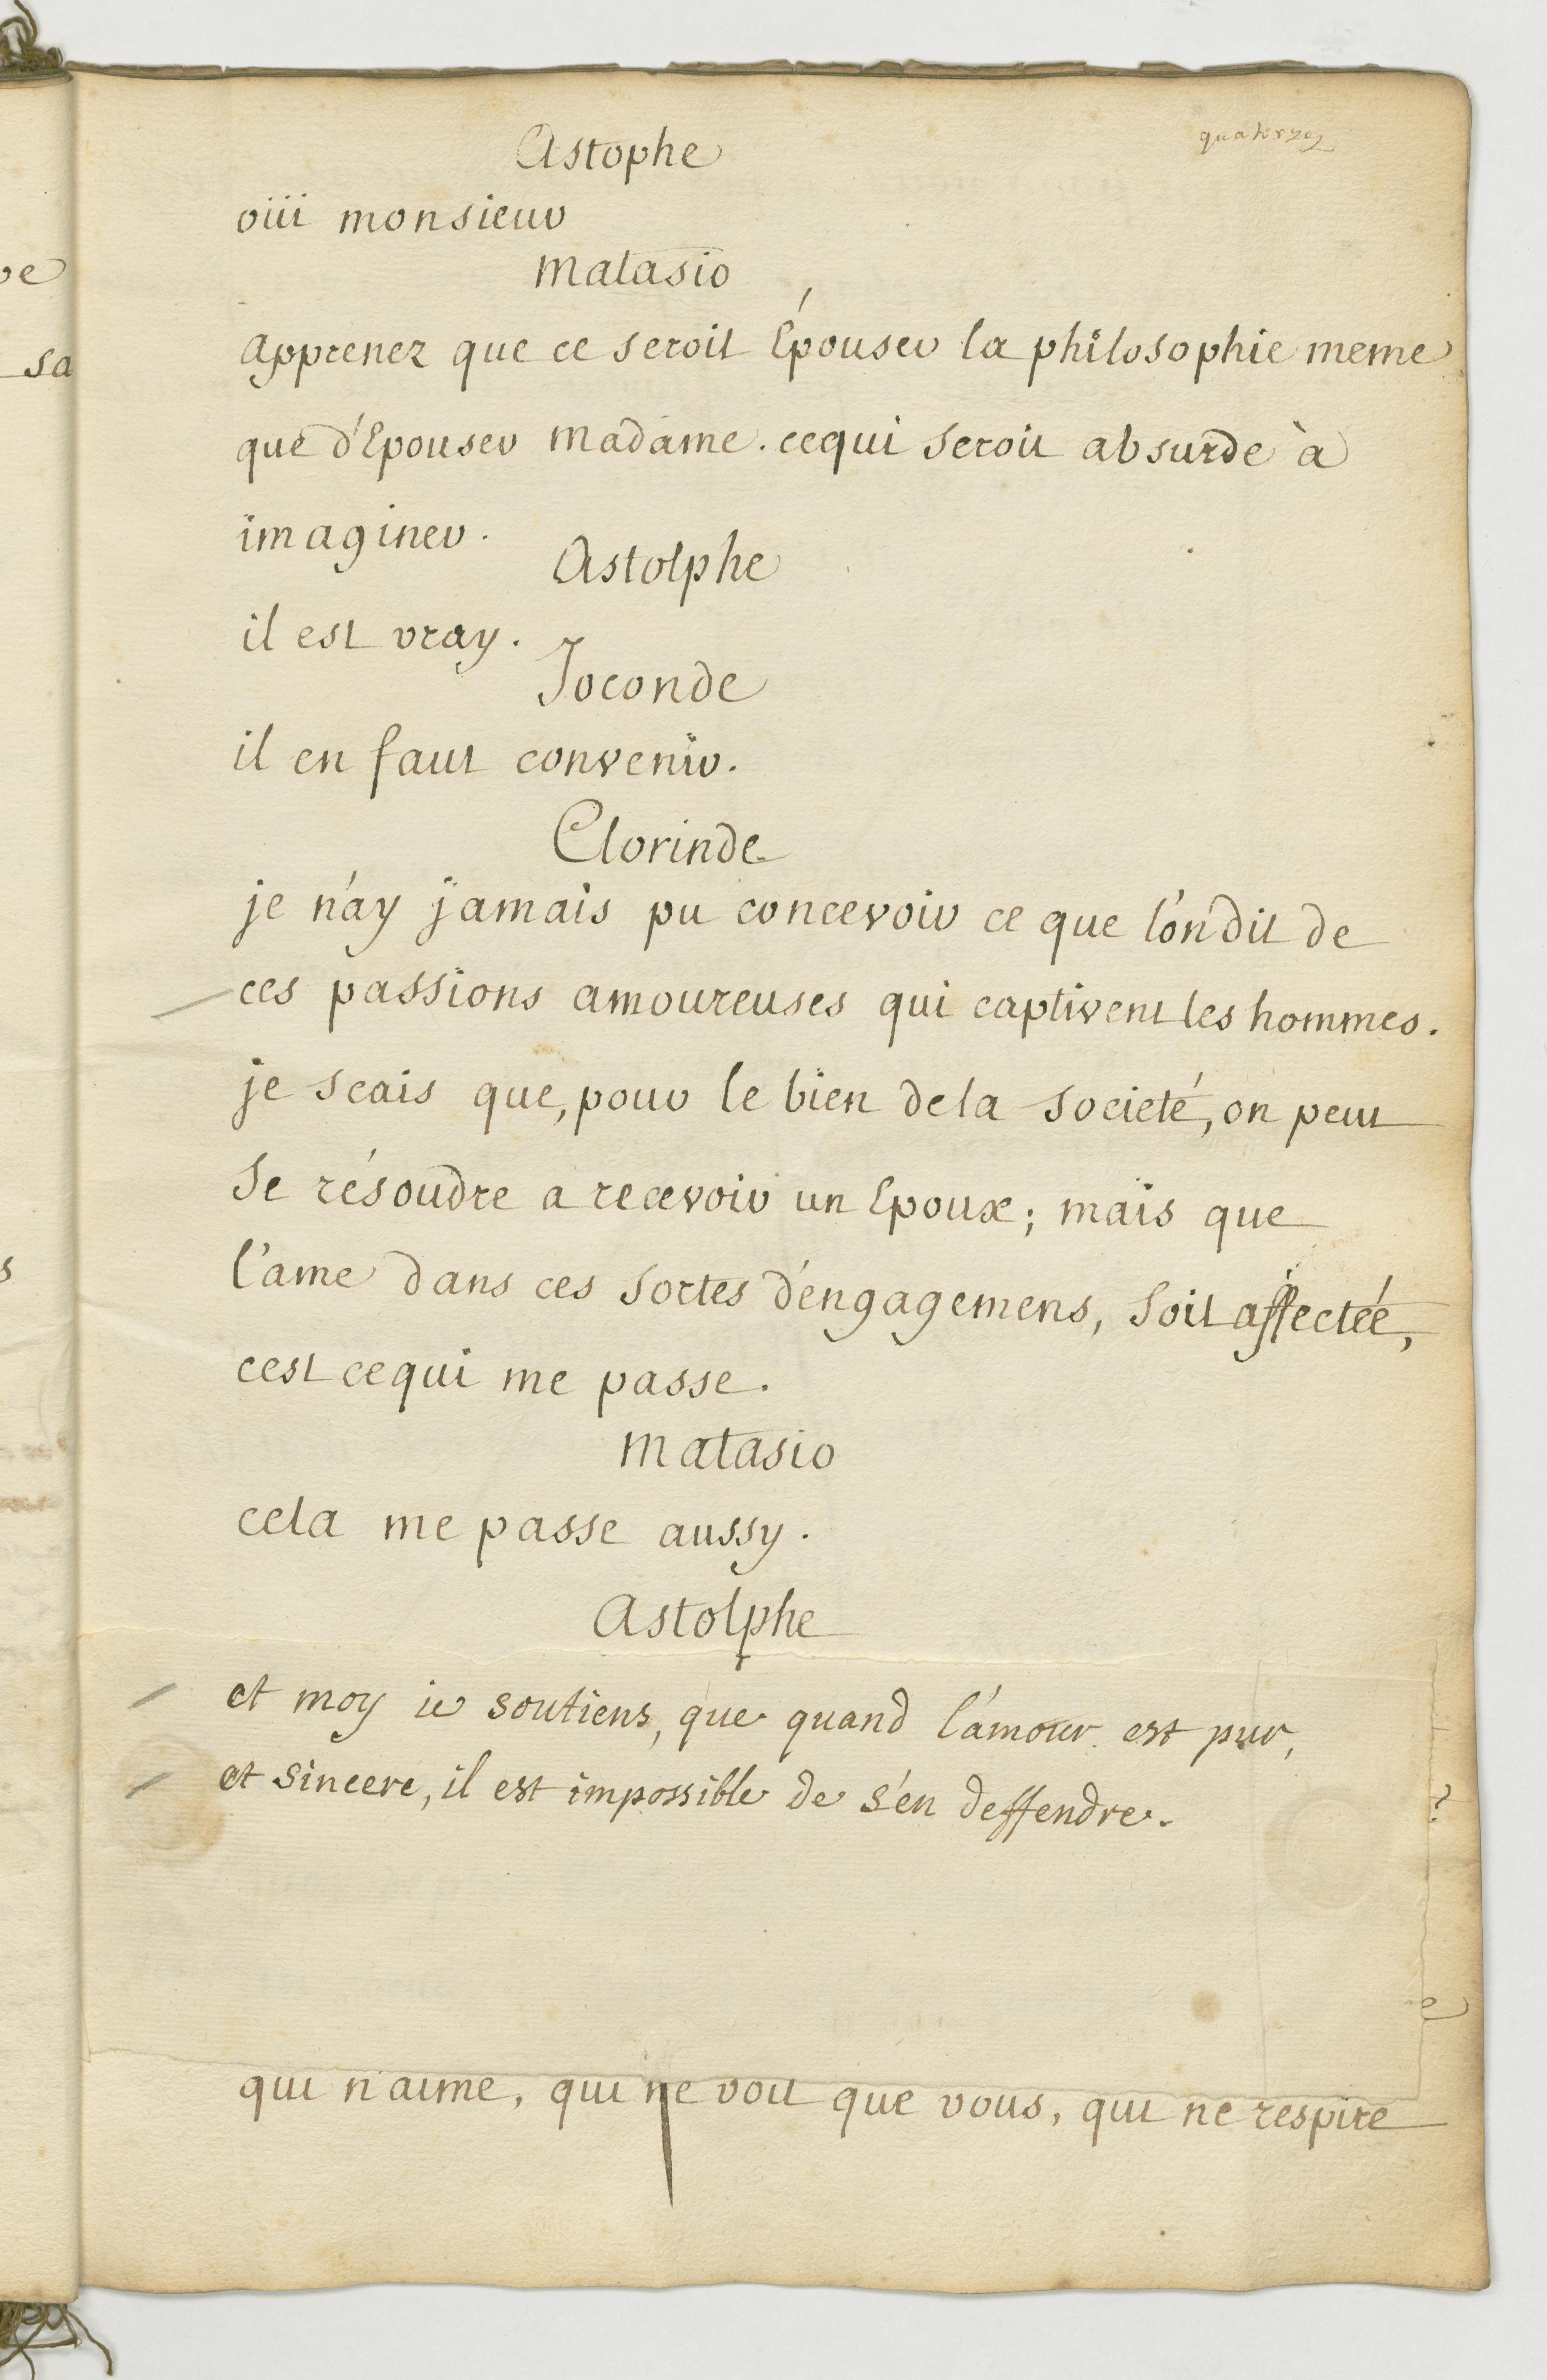 quatorze
Astophe
oüi monsieur
matasio
apprenez que ce seroit Épouser la philosophie meme
que d'Epouser madame. cequi seroit absurde à
imaginer.
Astolphe
il est vray.
Joconde
il en faut convenir.
Clorinde
je n'ay jamais pu concevoir ce que l'on dit de
ces passions amoureuses qui captivent les hommes.
je scais que, pour le bien dela societé, on peut
se résoudre a recevoir un Epoux; mais que
l'ame dans ces sortes d'engagemens, soit affectée,
cest cequi me passe.
matasio
cela me passe aussy.
Astolphe
et moy ie soutiens, que quand l'amour est pur,
et sincere, il est impossible de s'en deffendre.
qui n'aime, qui ne voit que vous, qui ne respire